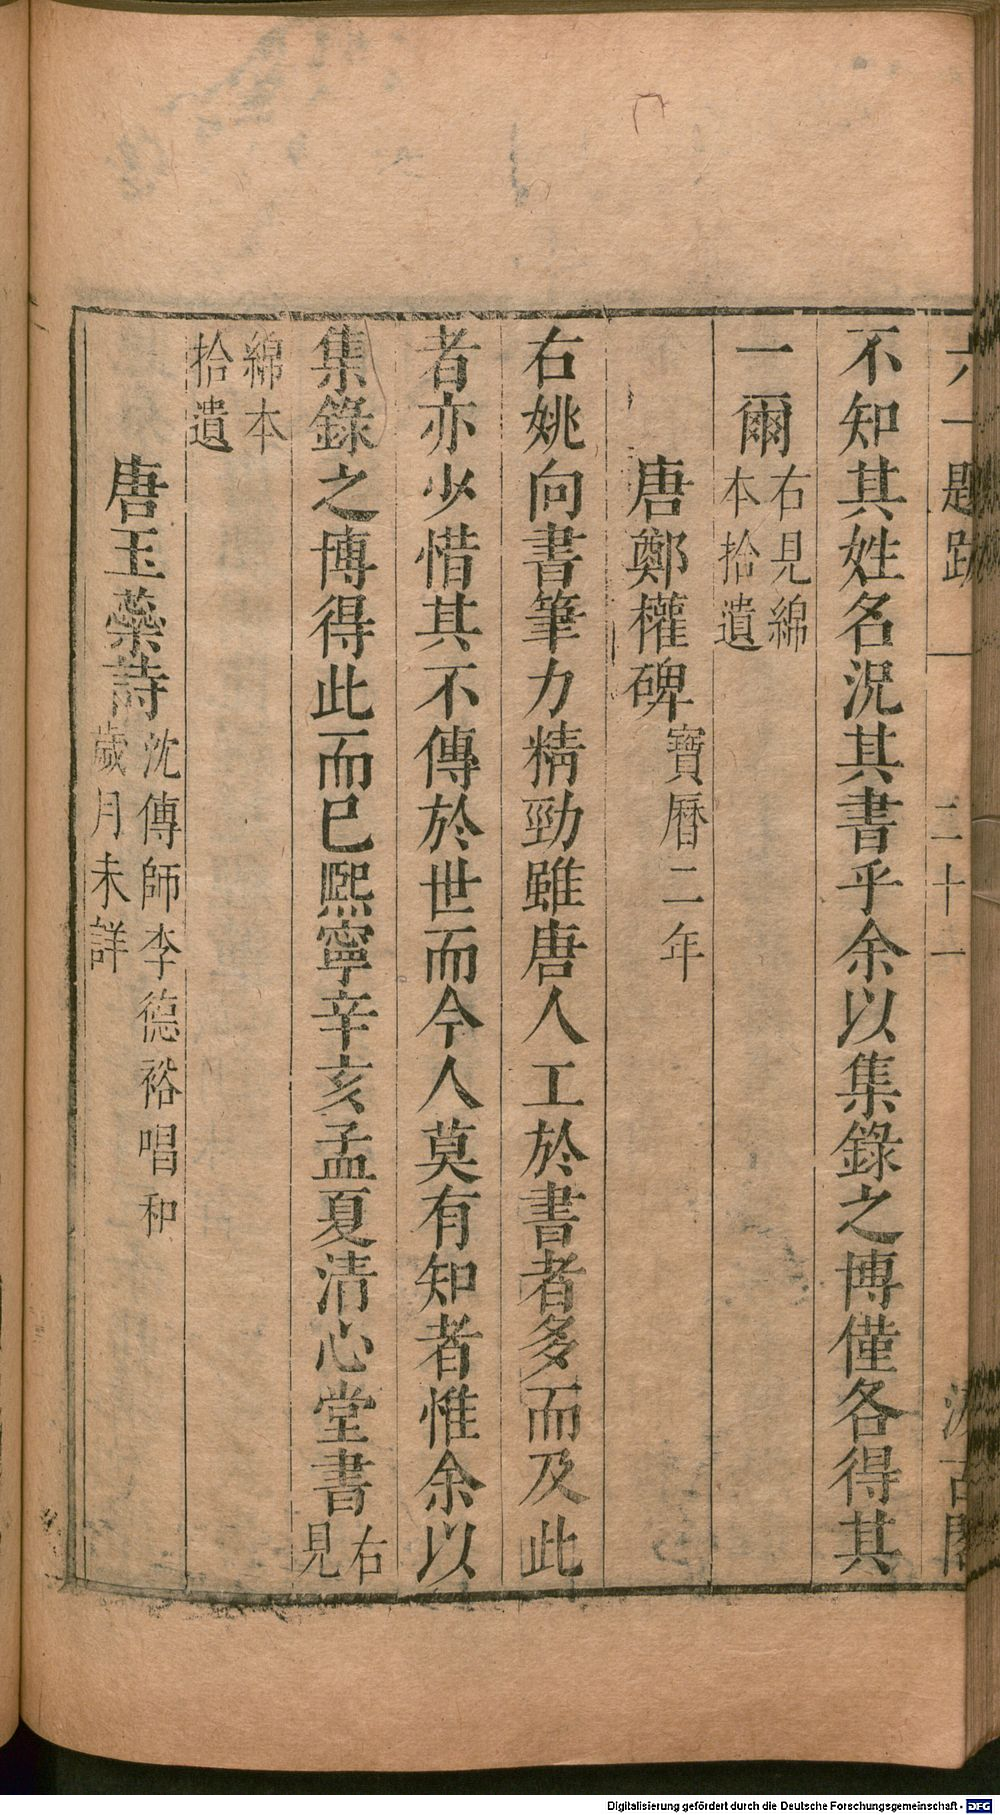 六一題跋 二十一 汲古閣
不知其姓名況其書乎余以集錄之博僅各得其
一爾右見綿本拾遺
唐鄭權碑寶曆二年
右姚向書筆力精勁雖唐人工於書者多而及此
者亦少惜其不傳於世而今人莫有知者惟余以
集錄之博得此而已熙寧辛亥孟夏清心堂書右見
綿本拾遺
唐玉蘂詩沈傳師李德裕唱和歲月未詳
Digitalisierung gefördert durch die Deutsche Forschungsgemeinschaft - DFG